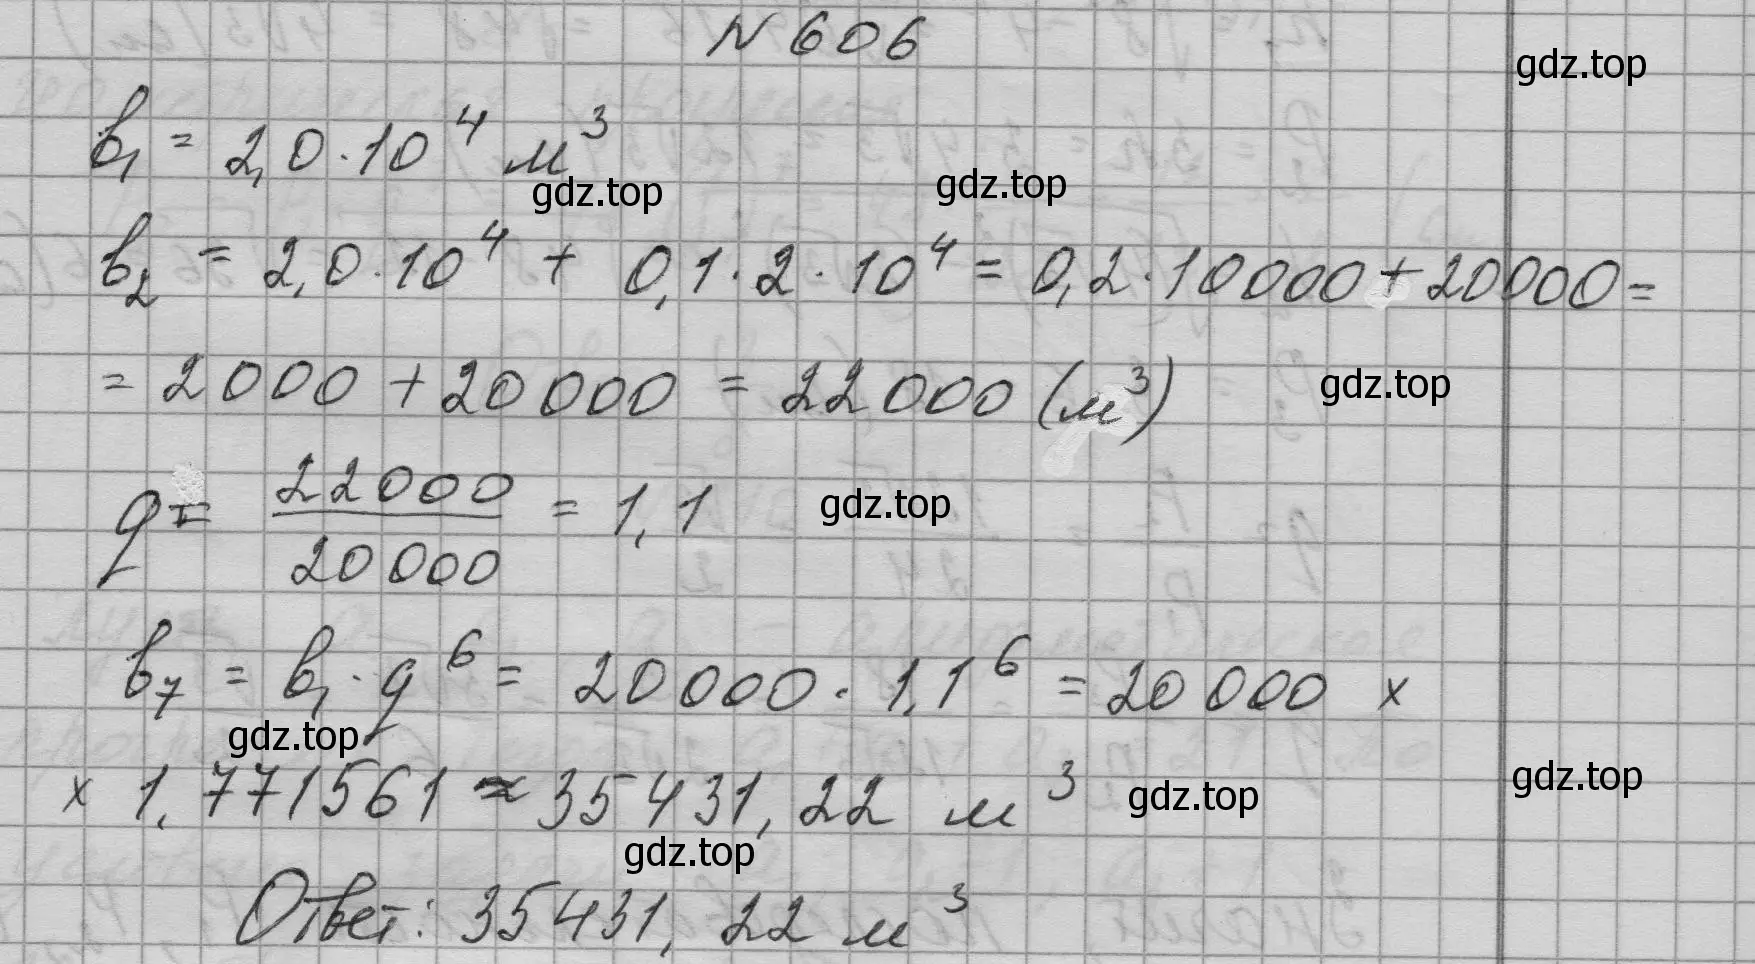 N 606
gdz.top
b₁ = 2,0·10⁴ м³
gdz.top gdz.top
b₂ = 2,0·10⁴ + 0,1·2·10⁴ = 0,2·10000+20000 =
= 2000 + 20000 = 22000 (м³) gdz.top
q = 22000/20000 = 1,1 gdz.top
b₇ = b₁·q⁶ = 20000·1,1⁶ = 20000 ×
gdz.top
× 1,771561 ≈ 35431,22 м³ gdz.top gdz.top
gdz.top
Ответ: 35431,22 м³